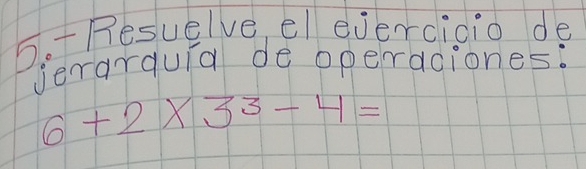 5.- Resuelve el ejercicio de
jerarquía de operaciones:
6 + 2 X 3³ - 4 =